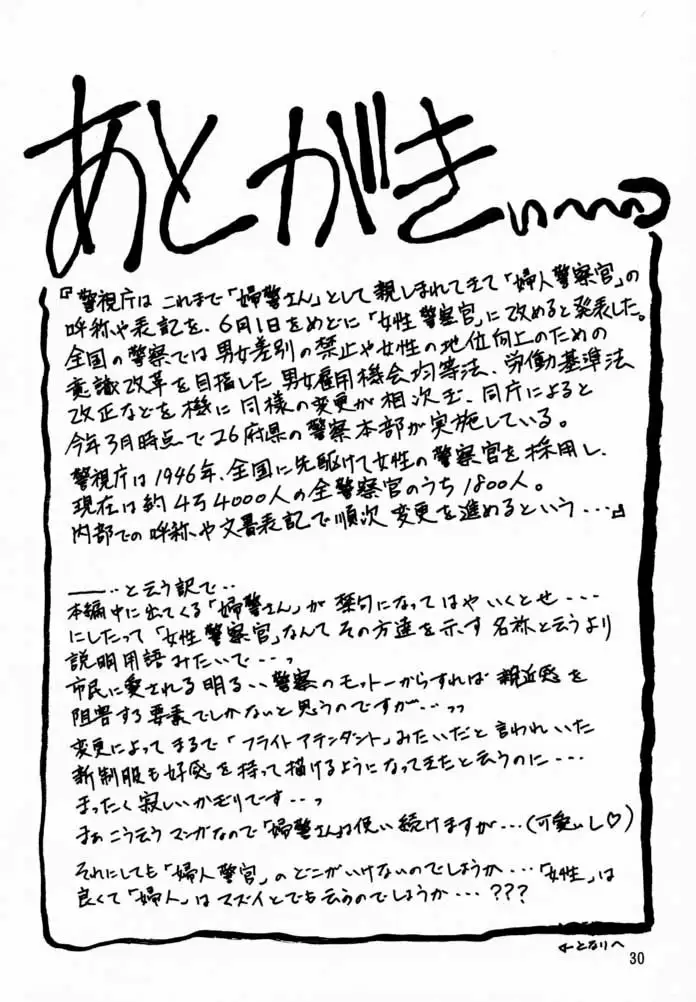 あとがきぃ〜〜
『警視庁は これまで「婦警さん」として親しまれてきて「婦人警察官」の
呼称や表記を、6月1日をめどに「女性警察官」に改めると発表した。
全国の警察では男女差別の禁止や女性の地位向上のための
意識改革を目指した男女雇用機会均等法、労働基準法
改正などを機に同様の変更が相次ぎ、同庁によると
今年3月時点で26府県の警察本部が実施している。
警視庁は1946年、全国に先駆けて女性の警察官を採用し、
現在は約4万4000人の全警察官のうち1800人。
内部での呼称や文書表記で順次変更を進めるという...』
――..と云う訳で..
本編中に出てくる「婦警さん」が禁句になってはやいくとせ...
にしたって「女性警察官」なんてその方達を示す名称と云うより
説明用語みたいで...っ
市民に愛される明るい警察のモットーからすれば親近感を
阻害する要素でしかないと思うのですが...っっ
変更によってまるで「フライトアテンダント」みたいだと言われいた
新制服も好感を持って描けるようになってきたと云うのに...
まったく寂しいかぎりです...っ
まぁこう云うマンガなので「婦警さん」は使い続けますが...(可愛いし♡)
それにしても「婦人警官」のどこがいけないのでしょうか...「女性」は
良くて「婦人」はマズイとでも云うのでしょうか...???
←となりへ
30